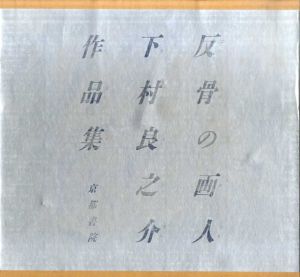 反骨の画人
下村良之介
作品集
京都書院